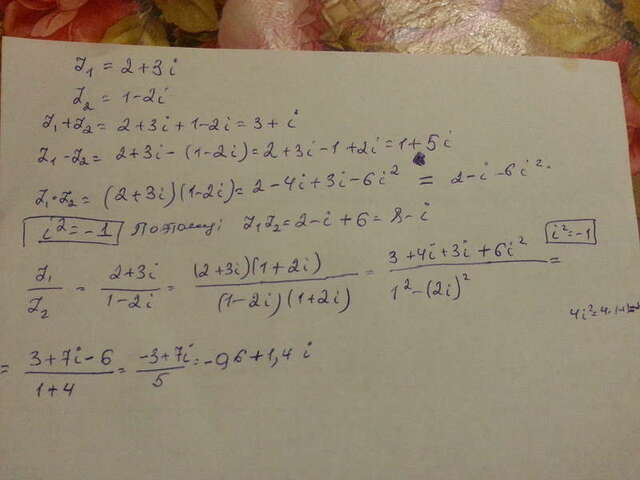 Z₁ = 2+3i
Z₂ = 1-2i
Z₁+Z₂ = 2+3i+1-2i = 3+i
Z₁-Z₂ = 2+3i-(1-2i) = 2+3i-1+2i = 1+5i
Z₁·Z₂ = (2+3i)(1-2i) = 2-4i+3i-6i² = 2-i-6i².
i²=-1 Поэтому: Z₁Z₂ = 2-i+6 = 8-i
Z₁/Z₂ = (2+3i)/(1-2i) = (2+3i)(1+2i)/(1-2i)(1+2i) = (3+4i+3i+6i²)/(1²-(2i)²) = i²=-1
= (3+7i-6)/(1+4) = (-3+7i)/5 = -0,6+1,4i